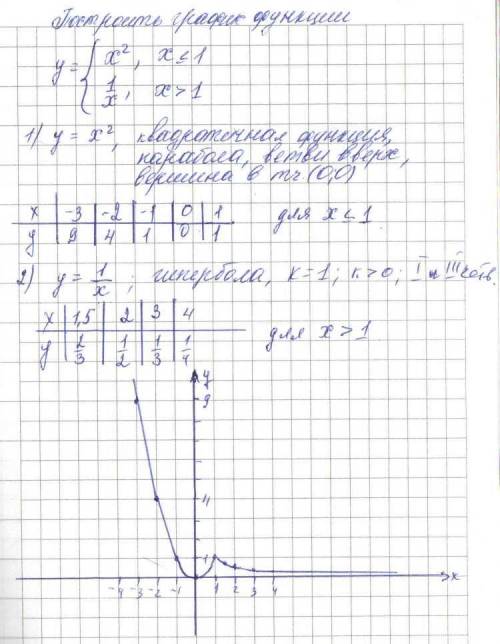 Построить график функции
y = { x², x ≤ 1
1/x, x > 1
1) y = x², квадратичная функция,
парабола, ветви вверх,
вершина в т. (0,0)
x | -3 | -2 | -1 | 0 | 1
y | 9 | 4 | 1 | 0 | 1
для x ≤ 1
2) y = 1/x ; гипербола, k=1; k>0; I и III четв.
x | 1,5 | 2 | 3 | 4
y | 2/3 | 1/2 | 1/3 | 1/4
для x > 1
y
9
4
1
-4 -3 -2 -1 1 2 3 4 x